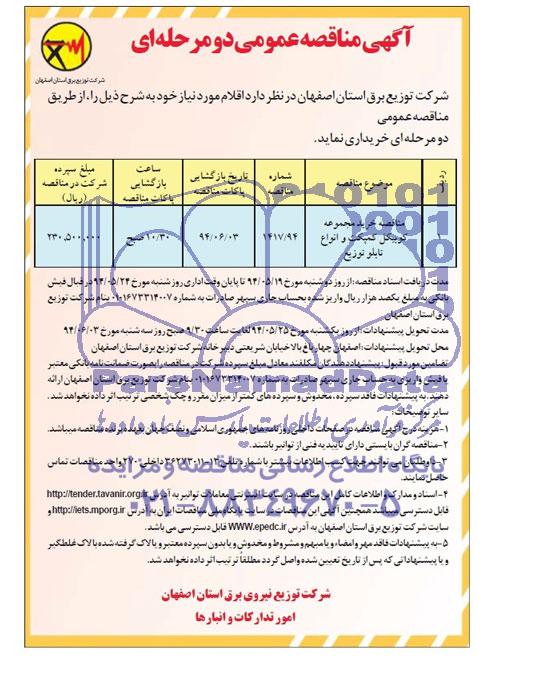 آگهی مناقصه عمومی دو مرحله‌ای
شرکت توزیع برق استان اصفهان
شرکت توزیع برق استان اصفهان در نظر دارد اقلام مورد نیاز خود به شرح ذیل را، از طریق
مناقصه عمومی
دو مرحله ای خریداری نماید.
ردیف
موضوع مناقصه
شماره مناقصه
تاریخ بازگشایی پاکات مناقصه
ساعت بازگشایی پاکات مناقصه
مبلغ سپرده شرکت در مناقصه (ریال)
مناقصه خرید مجموعه
یونیکل کمپکت و انواع
تابلو توزیع
۱۴۱۷/۹۴
۹۴/۰۶/۰۳
۱۰/۳۰ صبح
۲۳۰,۵۰۰,۰۰۰
مدت دریافت اسناد مناقصه: از روز دوشنبه مورخ ۹۴/۰۵/۱۹ تا پایان وقت اداری روز شنبه مورخ ۹۴/۰۵/۲۴ در قبال فیش
بانکی به مبلغ یکصد هزار ریال واریز شده بحساب جاری سپهر صادرات به شماره ۰۱۰۱۶۷۳۳۱۴۰۰۷ بنام شرکت توزیع
برق استان اصفهان
مدت تحویل پیشنهادات: از روز یکشنبه مورخ ۹۴/۰۵/۲۵ لغایت ساعت ۹/۳۰ صبح روز سه شنبه مورخ ۹۴/۰۶/۰۳
محل تحویل پیشنهادات: اصفهان چهارباغ بالا خیابان شریعتی دبیرخانه شرکت توزیع برق استان اصفهان
تضامین مورد قبول: پیشنهاد دهندگان مکلفند معادل مبلغ سپرده شرکت در مناقصه را بصورت ضمانت نامه بانکی معتبر
یا فیش واریزی به حساب جاری سپهر صادرات به شماره ۰۱۰۱۶۷۳۳۱۴۰۰۷ بنام شرکت توزیع برق استان اصفهان ارائه
دهند. به پیشنهادات فاقد سپرده، مخدوش و سپرده های کمتر از میزان مقرر و چک شخصی ترتیب اثر داده نخواهد شد.
سایر توضیحات:
۱- هزینه درج آگهی مناقصه در صفحات داخلی روزنامه های جمهوری اسلامی و نصف جهان بعهده برنده مناقصه میباشد.
۲- مناقصه گران بایستی دارای تاییدیه فنی از توانیر باشند.
۳- داوطلبان می توانند جهت کسب اطلاعات بیشتر با شماره تلفن ۱۱-۳۶۲۷۳۰۱۱ داخلی ۲۲۰ واحد مناقصات تماس
حاصل نمایند.
۴- اسناد و مدارک و اطلاعات کامل این مناقصه در سایت اینترنتی معاملات توانیر به آدرس http://tender.tavanir.org.ir
قابل دسترسی میباشد همچنین آگهی این مناقصات در سایت پایگاه ملی مناقصات ایران به آدرس http://iets.mporg.ir و
سایت شرکت توزیع برق استان اصفهان به آدرس WWW.epedc.ir قابل دسترسی می باشد.
۵- به پیشنهادات فاقد مهر و امضاء و یا مبهم و مشروط و مخدوش و یا بدون سپرده معتبر و یا لاک گرفته شده بالاک غلطگیر
و یا پیشنهاداتی که پس از تاریخ تعیین شده واصل گردد مطلقاً ترتیب اثر داده نخواهد شد.
شرکت توزیع نیروی برق استان اصفهان
امور تدارکات و انبارها
ParsNamadData
پایگاه اطلاع رسانی مناقصه و مزایده
۰۲۱-۸۸۳۴۹۶۷۰-۵